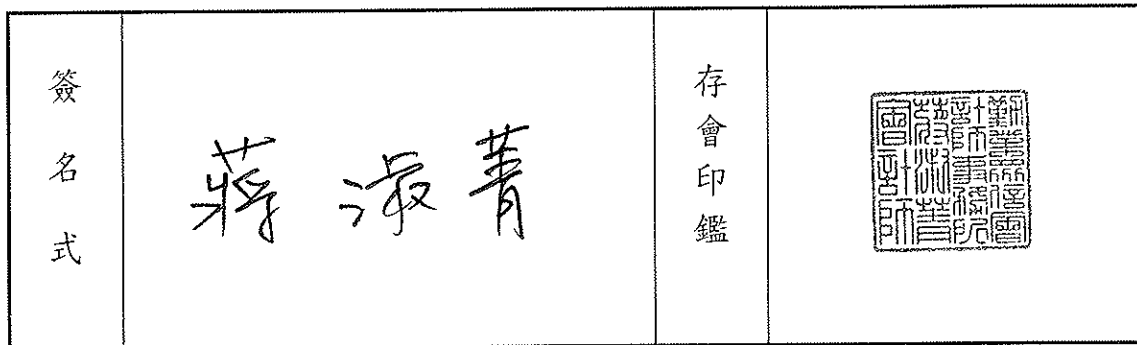 簽名式
蔣淑菁
存會印鑑
勤業眾信會
計師事務所
蔣淑菁
會計師